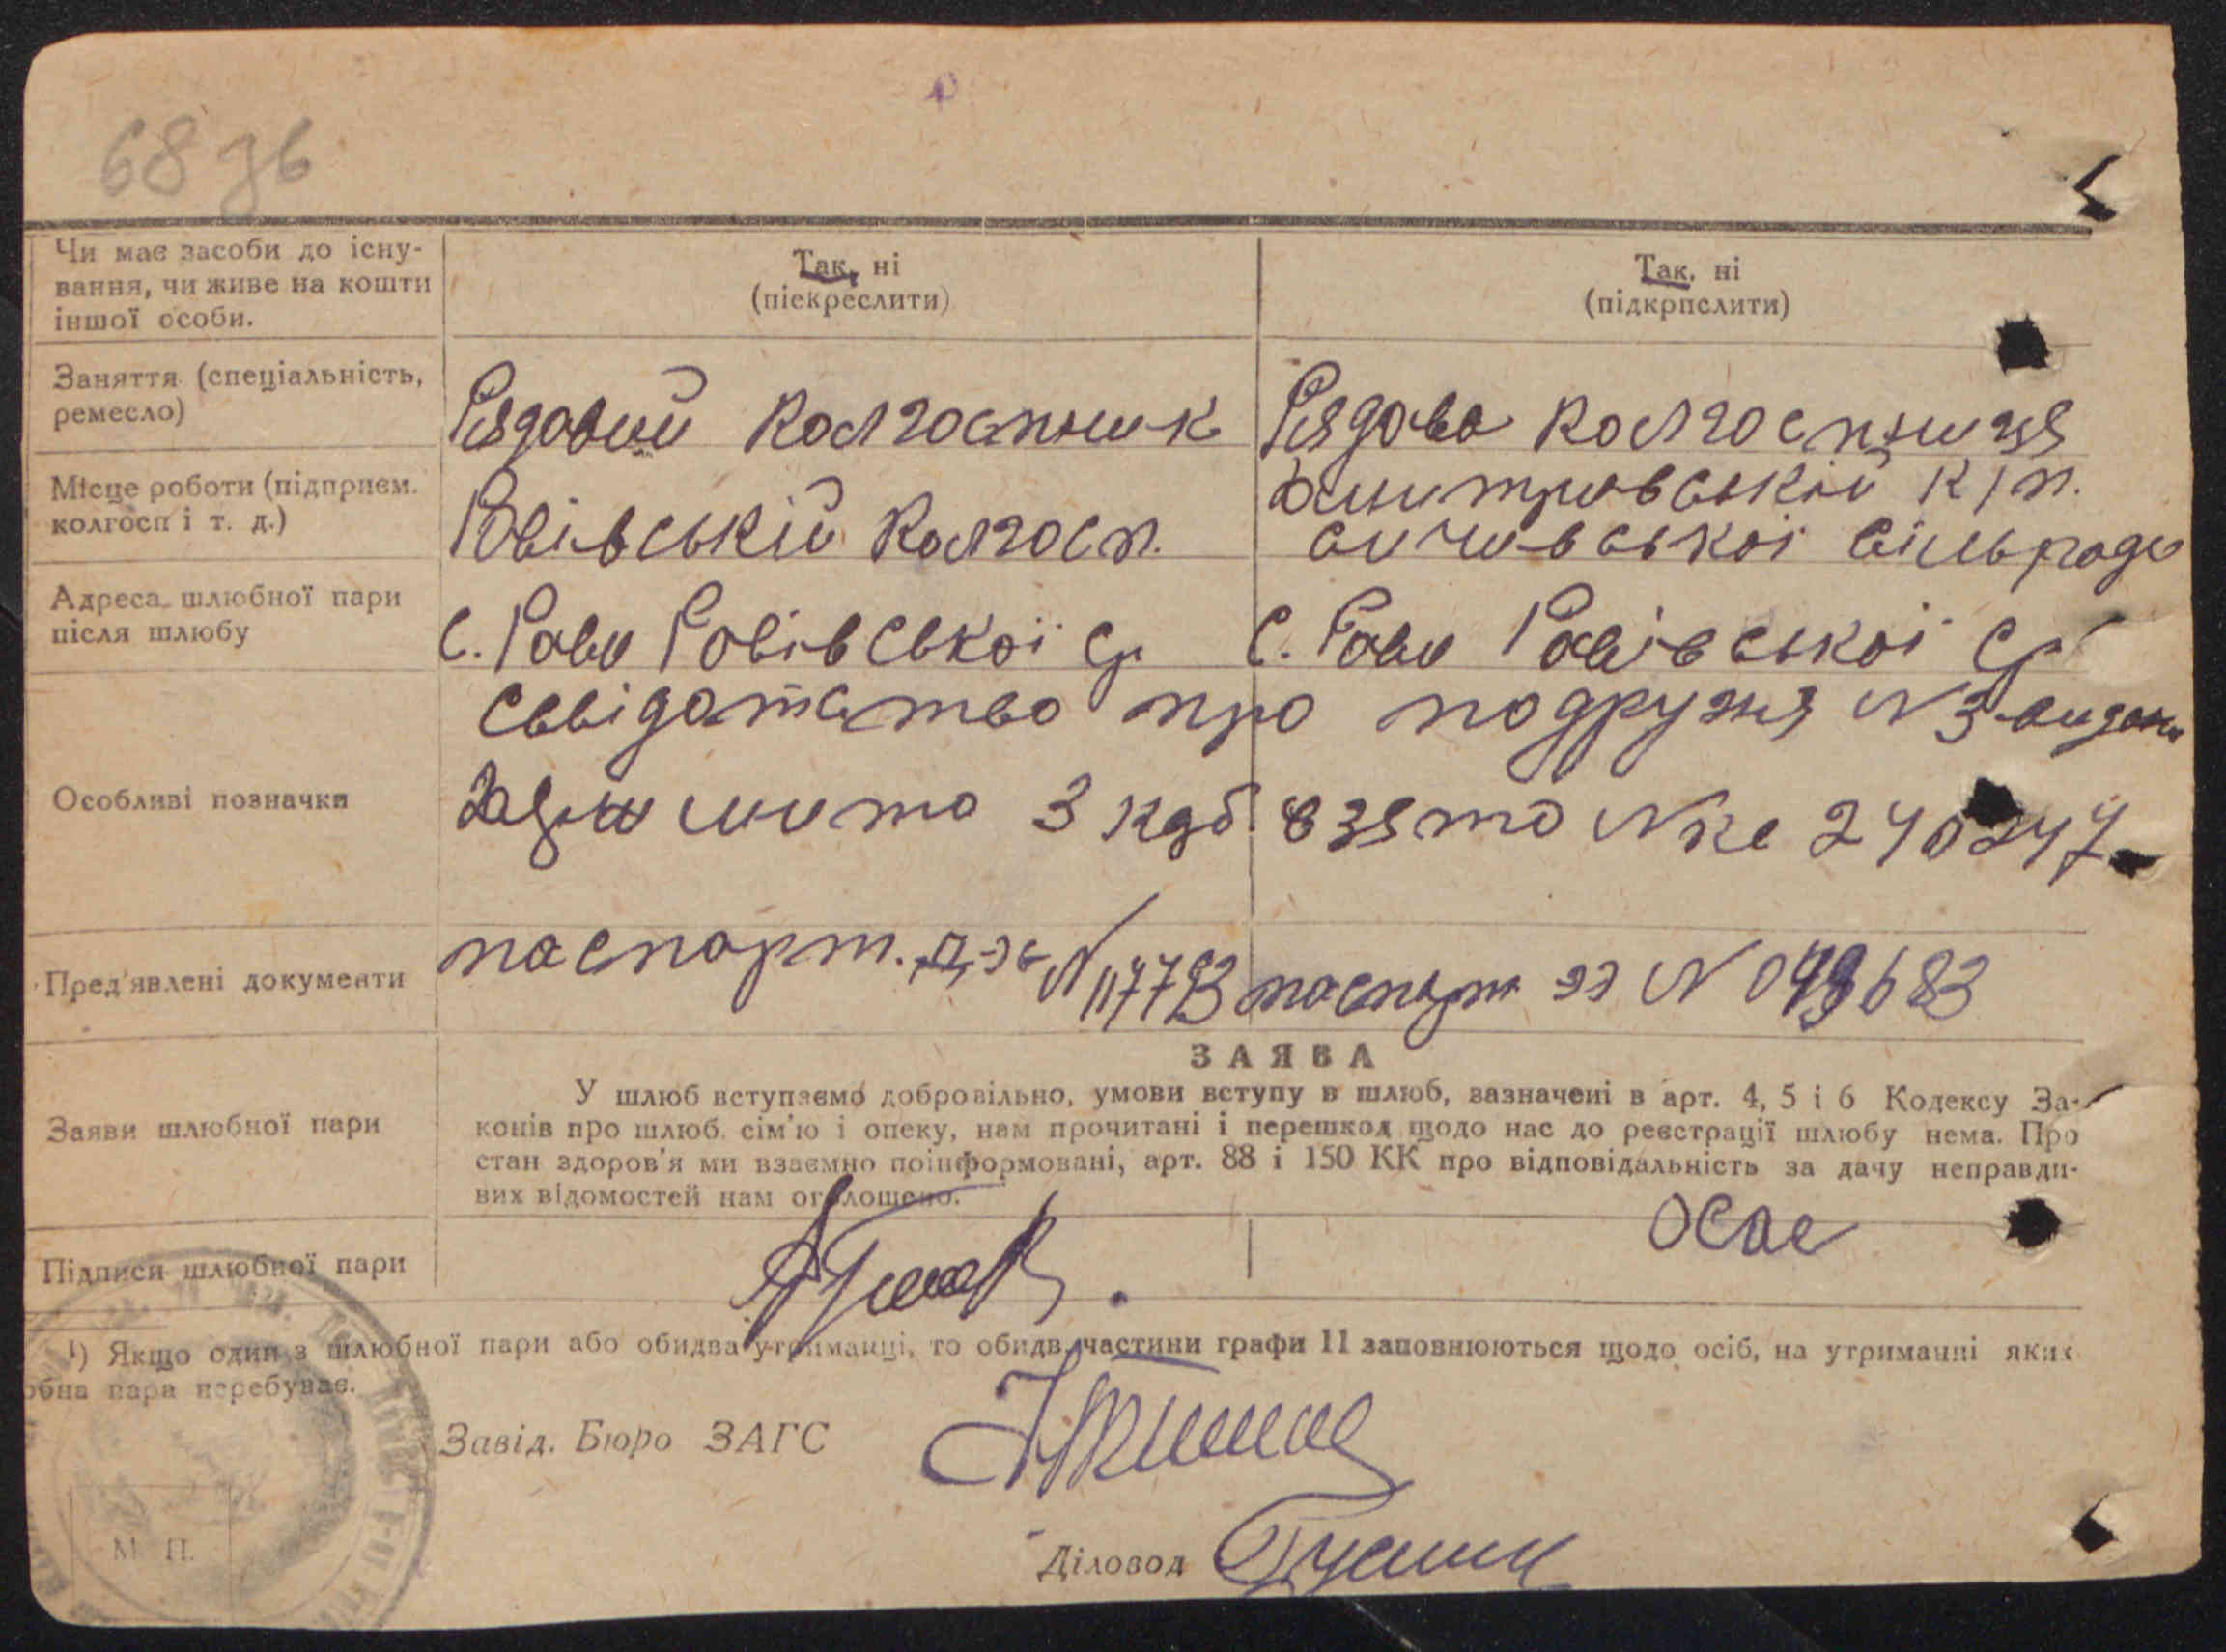 68 зв
Чи має засоби до існу-
вання, чи живе на кошти
іншої особи.
Так, ні
(піекреслити)
Так, ні
(підкрпслити)
Заняття (спеціальність,
ремесло)
Рядовий колгоспник
Рядова колгоспниця
Місце роботи (підприєм.
колгосп і т. д.)
Ровівській колгосп.
Дмитровській к/г.
сільради
Адреса шлюбної пари
після шлюбу
с. Рови Ровівської ср
с. Рови Ровівської ср
Особливі позначки
свідотство про подружня N 3 видане
мито 3 крб. взято N ке 240247
Пред'явлені документи
паспорт. N 117793
паспорт ээ N 098683
Заяви шлюбної пари
ЗАЯВА
У шлюб вступаємо добровільно, умови вступу в шлюб, зазначені в арт. 4, 5 і 6 Кодексу За-
конів про шлюб. сім'ю і опеку, нам прочитані і перешкод щодо нас до реєстрації шлюбу нема. Про
стан здоров'я ми взаємно поінформовані, арт. 88 і 150 КК про відповідальність за дачу неправди-
вих відомостей нам оголошено.
Підписи шлюбної пари
¹) Якщо один з шлюбної пари або обидва утриманці, то обидві частини графи 11 заповнюються щодо осіб, на утриманні яких
обна пара перебуває.
Завід. Бюро ЗАГС
М. П.
Діловод